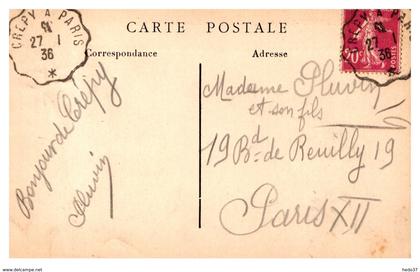 CREPY A PARIS
27 - 1
36
*
CARTE POSTALE
CREPY A PARIS
27 - 1
36
*
20c
POSTES
Correspondance
Adresse
Bonjour de Crépy
Madame Pluvin
et son fils
19 Bd de Reuilly 19
Paris XII
hedo37